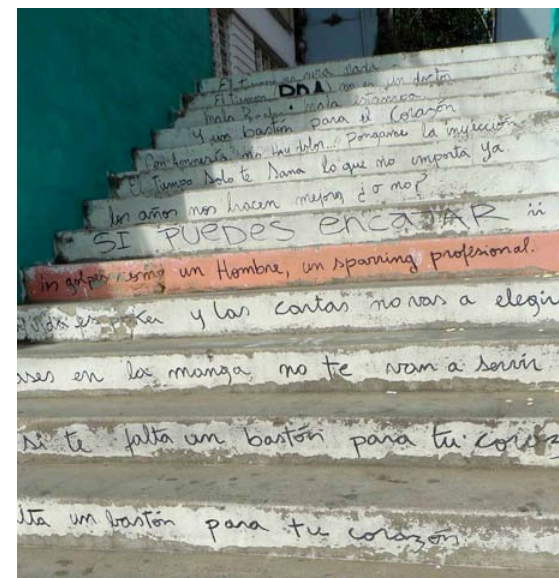 El tiempo no cura nada
El tiempo no es un doctor
DNA
mala estámica
y un bastón para el Corazón
Con Amnesia no hay dolor... Pongame la inyección
El Tiempo Solo te Sana lo que no importa ya.
los años nos hacen mejores ¿o no?
SI PUEDES ENCAJAR ¡¡
un golpe como un Hombre, un sparring profesional.
es poker y las cartas no vas a elegir
ases en la manga no te van a servir
si te falta un bastón para tu coraz
lta un bastón para tu corazón